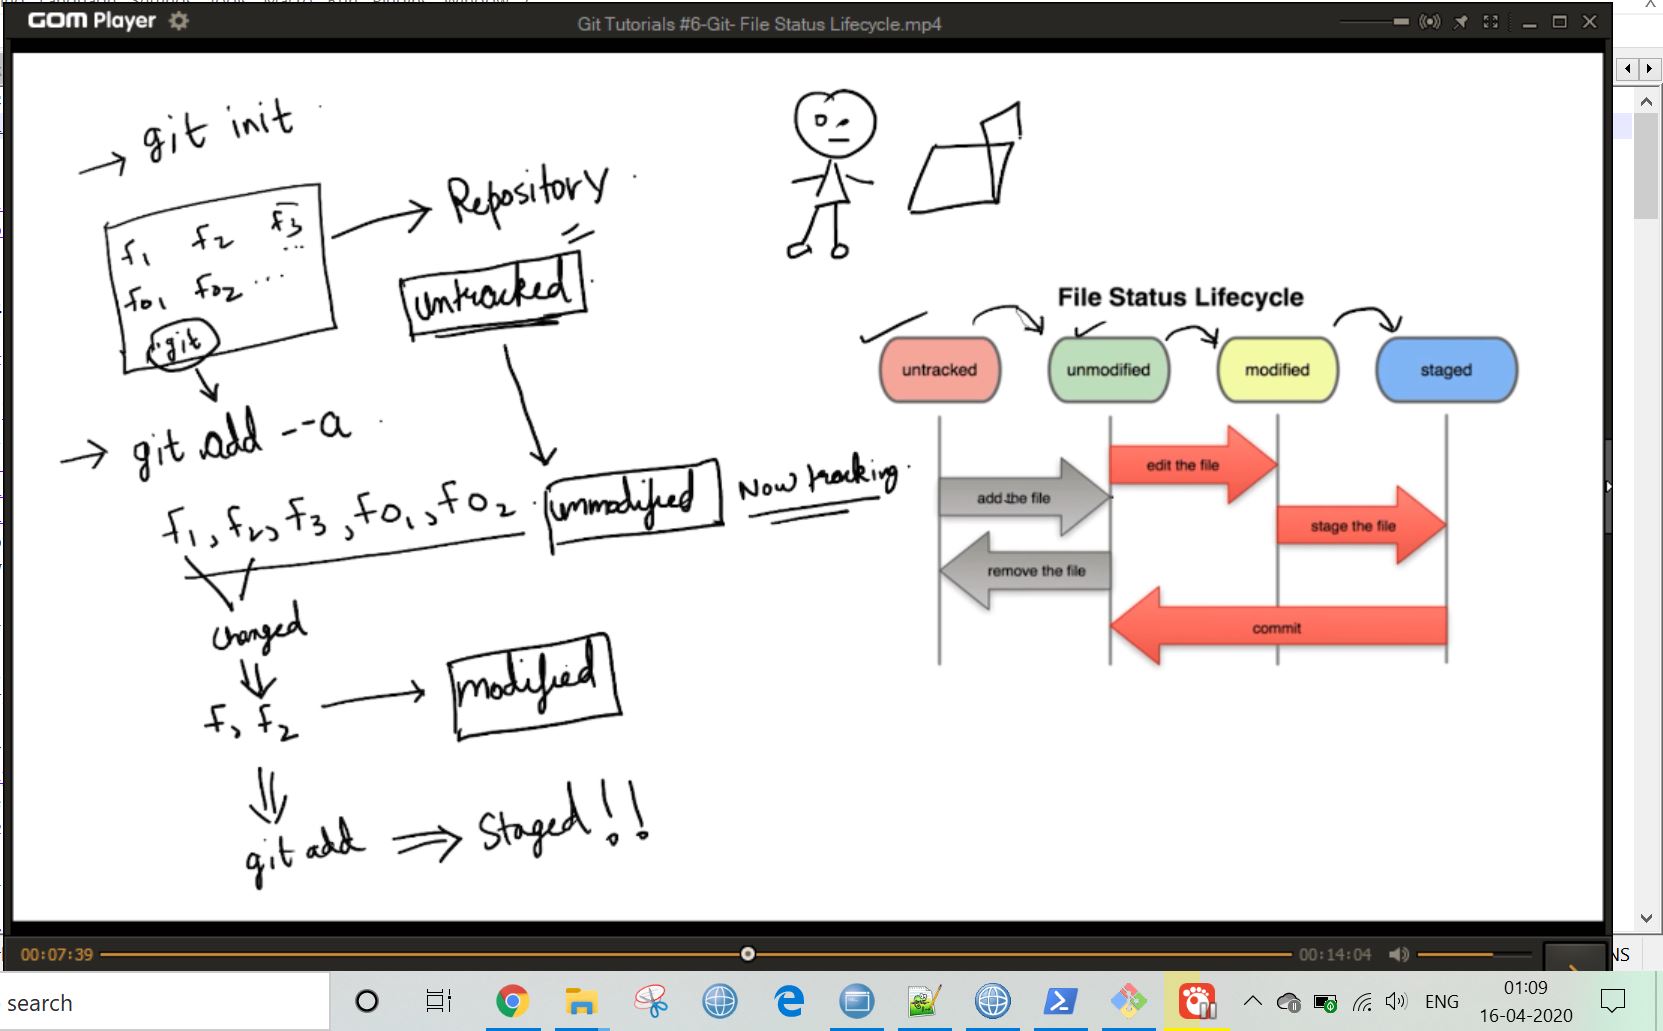 GOM Player
Git Tutorials #6-Git- File Status Lifecycle.mp4
→ git init
f1 f2 f3
...
f01 f02 ...
.git
→ Repository
untracked
→ git add --a
f1, f2, f3, f01, f02 . unmodified Now tracking.
changed
f, f2 → modified
git add ⇒ Staged!!
File Status Lifecycle
untracked unmodified modified staged
edit the file
add the file
stage the file
remove the file
commit
00:07:39
00:14:04
NS
search
ENG
01:09
16-04-2020